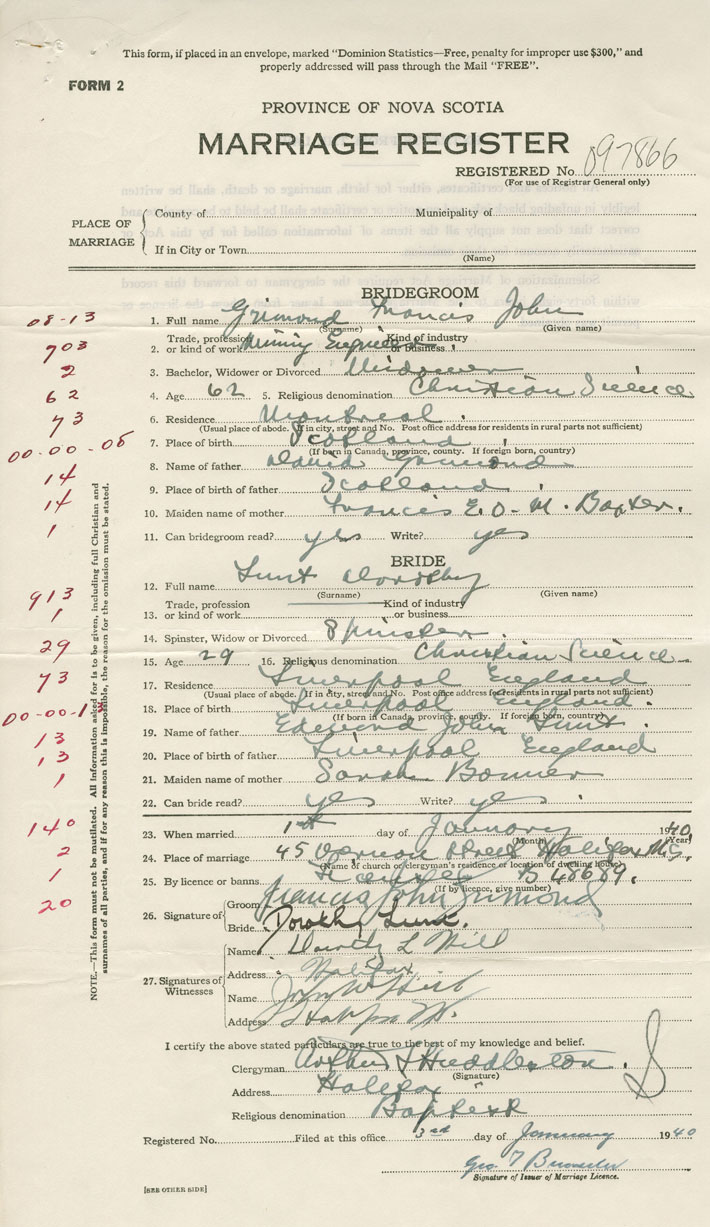 This form, if placed in an envelope, marked "Dominion Statistics—Free, penalty for improper use $300," and
properly addressed will pass through the Mail "FREE".
FORM 2
PROVINCE OF NOVA SCOTIA
MARRIAGE REGISTER
REGISTERED No. 097866
(For use of Registrar General only)
PLACE OF MARRIAGE
County of Municipality of
If in City or Town
(Name)
BRIDEGROOM
08-13
1. Full name Grimond Francis John
(Surname) (Given name)
703
Trade, profession Kind of industry
2. or kind of work Mining Engineer or business
2
3. Bachelor, Widower or Divorced Widower
62
4. Age 62 5. Religious denomination Christian Science
73
6. Residence Montreal.
(Usual place of abode. If in city, street and No. Post office address for residents in rural parts not sufficient)
00-00-05
7. Place of birth Scotland
(If born in Canada, province, county. If foreign born, country)
14
8. Name of father David Grimond
14
9. Place of birth of father Scotland
10. Maiden name of mother Francis E. O. M. Baxter.
1
11. Can bridegroom read? yes Write? yes
BRIDE
913
12. Full name Lunt Dorothy
(Surname) (Given name)
1
Trade, profession Kind of industry
13. or kind of work or business
14. Spinster, Widow or Divorced Spinster.
29
15. Age 29 16. Religious denomination Christian Science
73
17. Residence Liverpool England
(Usual place of abode. If in city, street and No. Post office address for residents in rural parts not sufficient)
00-00-13
18. Place of birth Liverpool England.
(If born in Canada, province, county. If foreign born, country)
13
19. Name of father Edward John Lunt.
13
20. Place of birth of father Liverpool England
1
21. Maiden name of mother Sarah Bonner
22. Can bride read? yes Write? yes.
140
23. When married 1st day of January 1940
(Month) (Year)
2
24. Place of marriage 45 Vernon Street Halifax N.S.
(Name of church or clergyman's residence or location of dwelling house)
1
25. By licence or banns B 48689.
(If by licence, give number)
20
26. Signature of
Groom Francis John Grimond
Bride Dorothy Lunt.
27. Signatures of Witnesses
Name Dorothy L Hill
Address Halifax
Name
Address
I certify the above stated particulars are true to the best of my knowledge and belief.
Clergyman Arthur J Huddleston.
(Signature)
Address Halifax
Religious denomination Baptist
Registered No. Filed at this office 3rd day of January 1940
Signature of Issuer of Marriage Licence.
[SEE OTHER SIDE]
NOTE.—This form must not be mutilated. All information asked for is to be given, including full Christian and
surnames of all parties, and if for any reason this is impossible, the reason for the omission must be stated.